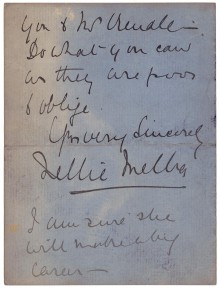 you & Mr
Do what you can
as they are poor
& oblige
Yrs very Sincerely
Nellie Melba
I am sure she
will make a big
career —